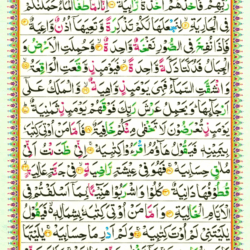 رَبِّهِمْ فَاَخَذَهُمْ اَخْذَةً رَّابِيَةً اِنَّا لَمَّا طَغَا الْمَآءُ حَمَلْنٰكُمْ
فِى الْجَارِيَةِ لِنَجْعَلَهَا لَكُمْ تَذْكِرَةً وَّتَعِيَهَآ اُذُنٌ وَّاعِيَةٌ
فَاِذَا نُفِخَ فِى الصُّوْرِ نَفْخَةٌ وَّاحِدَةٌ وَّحُمِلَتِ الْاَرْضُ وَ
الْجِبَالُ فَدُكَّتَا دَكَّةً وَّاحِدَةً فَيَوْمَئِذٍ وَّقَعَتِ الْوَاقِعَةُ
وَانْشَقَّتِ السَّمَآءُ فَهِىَ يَوْمَئِذٍ وَّاهِيَةٌ وَّالْمَلَكُ عَلٰٓى
اَرْجَآئِهَا وَيَحْمِلُ عَرْشَ رَبِّكَ فَوْقَهُمْ يَوْمَئِذٍ ثَمٰنِيَةٌ
يَوْمَئِذٍ تُعْرَضُوْنَ لَا تَخْفٰى مِنْكُمْ خَافِيَةٌ فَاَمَّا مَنْ اُوْتِىَ كِتٰبَهٗ
بِيَمِيْنِهٖ فَيَقُوْلُ هَآؤُمُ اقْرَءُوْا كِتٰبِيَهْ اِنِّىْ ظَنَنْتُ اَنِّىْ
مُلٰقٍ حِسَابِيَهْ فَهُوَ فِىْ عِيْشَةٍ رَّاضِيَةٍ فِىْ جَنَّةٍ عَالِيَةٍ
قُطُوْفُهَا دَانِيَةٌ كُلُوْا وَاشْرَبُوْا هَنِيْٓئًا بِمَآ اَسْلَفْتُمْ فِى
الْاَيَّامِ الْخَالِيَةِ وَاَمَّا مَنْ اُوْتِىَ كِتٰبَهٗ بِشِمَالِهٖ فَيَقُوْلُ
يٰلَيْتَنِىْ لَمْ اُوْتَ كِتٰبِيَهْ وَلَمْ اَدْرِ مَا حِسَابِيَهْ